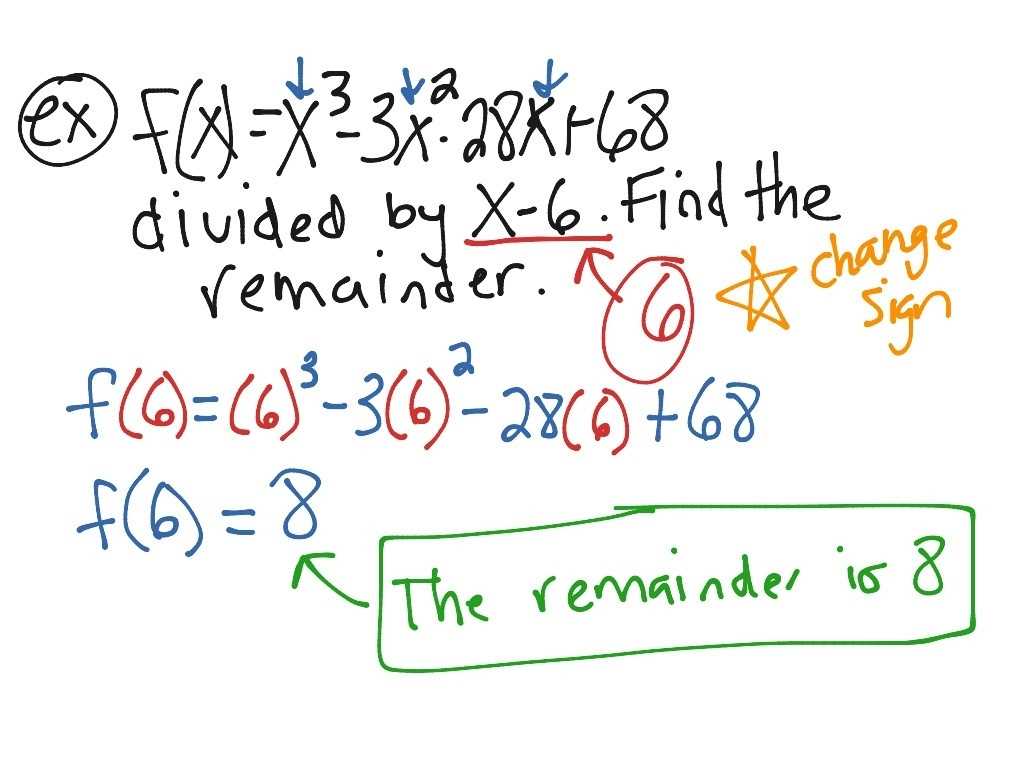 ex f(x)=x³-3x²-28x+68
divided by x-6. Find the
remainder.
6
change
sign
f(6)=(6)³-3(6)²-28(6)+68
f(6)=8
The remainder is 8